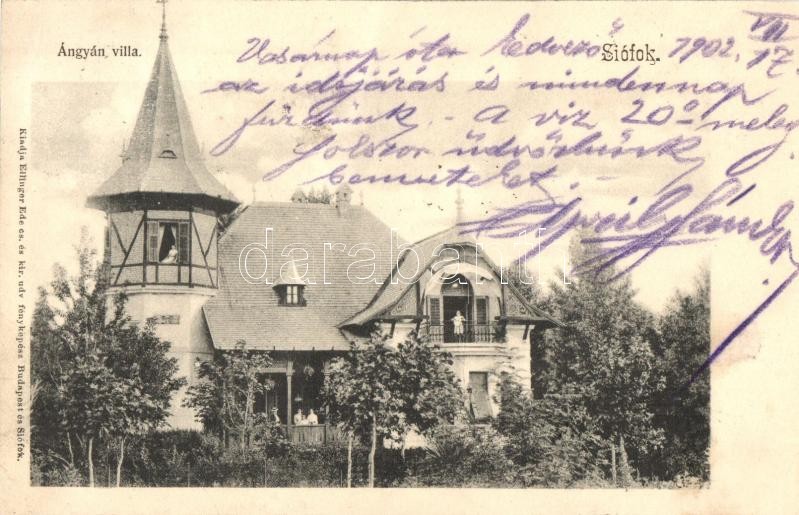 Ángyán villa.
Siófok.
Vasárnap óta Kedvező 1902. VII 17.
az időjárás és mindennap
fürdünk. - A viz 20° meleg
sokszor üdvözlünk
benneteket.
Sándor
Kiadja Ellinger Ede cs. és kir. udv fényképész Budapest és Siófok.
darabanth